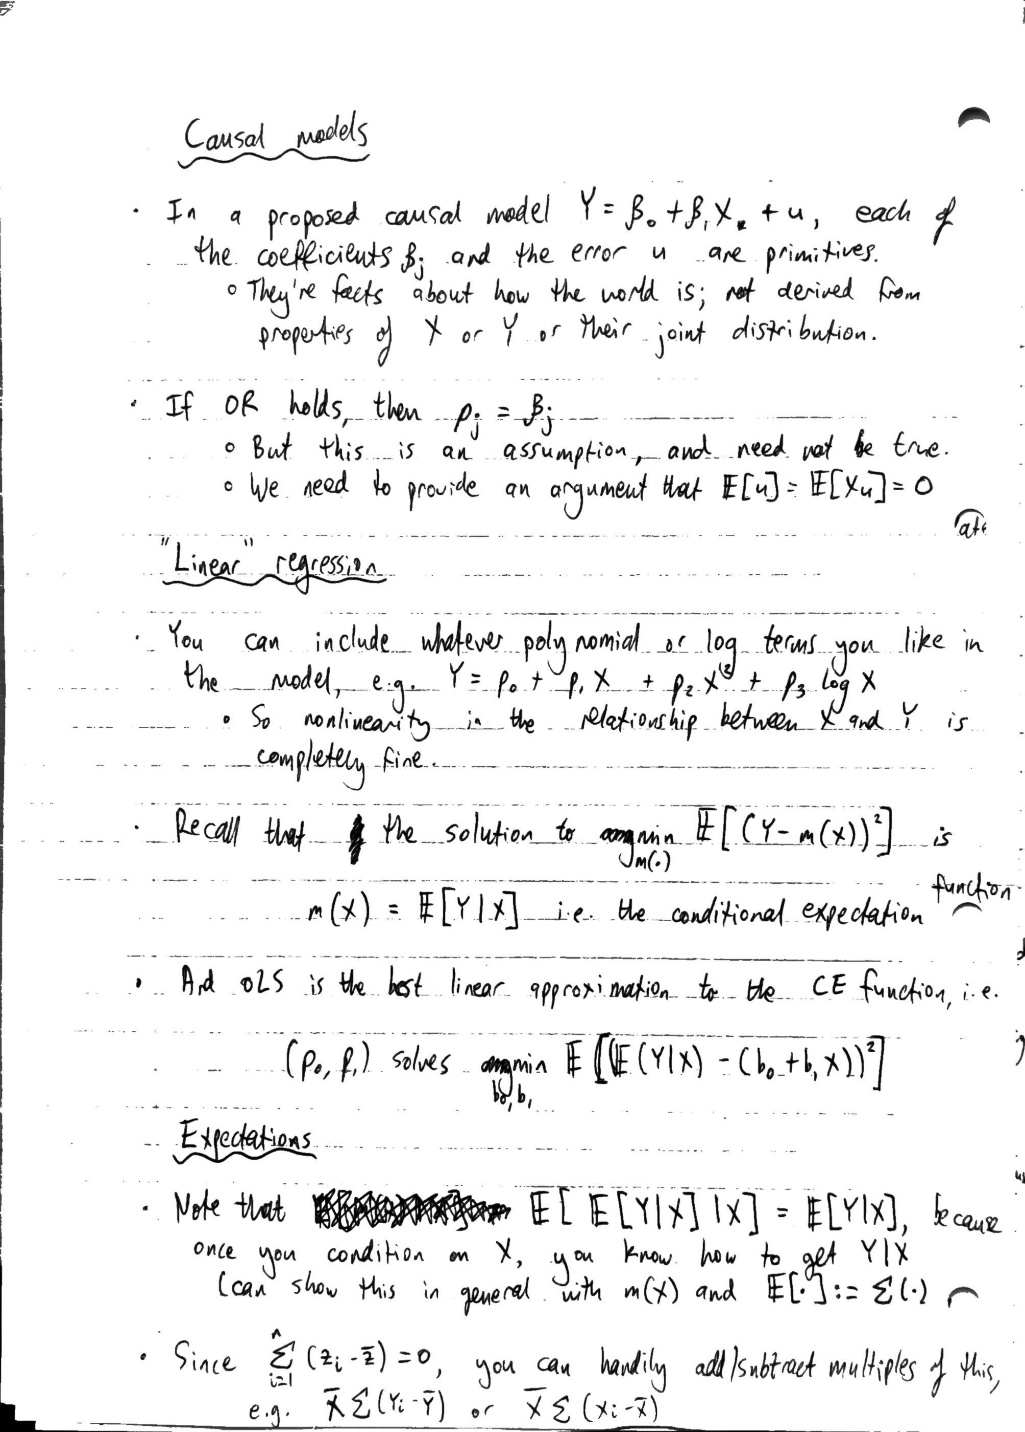 Causal models
· In a proposed causal model Y = β₀ + β₁X + u, each of
the coefficients βj and the error u are primitives.
∘ They're facts about how the world is; not derived from
properties of X or Y or their joint distribution.
· If OR holds, then ρj = βj
∘ But this is an assumption, and need not be true.
∘ We need to provide an argument that 𝔼[u] = 𝔼[Xu] = 0
"Linear" regression
· You can include whatever polynomial or log terms you like in
the model, e.g. Y = ρ₀ + ρ₁X + ρ₂X⁽²⁾ + ρ₃ log X
∘ So nonlinearity in the relationship between X and Y is
completely fine.
· Recall that the solution to argmin 𝔼[(Y - m(X))²] is
m(·)
m(X) = 𝔼[Y|X] i.e. the conditional expectation function
· And OLS is the best linear approximation to the CE function, i.e.
(ρ₀, ρ₁) solves argmin 𝔼[(𝔼(Y|X) - (b₀ + b₁X))²]
b₀, b₁
Expectations
· Note that 𝔼[𝔼[Y|X]|X] = 𝔼[Y|X], because
once you condition on X, you know how to get Y|X
(can show this in general with m(X) and 𝔼[·] := Σ(·)
· Since Σⁿᵢ₌₁ (zᵢ - z̄) = 0, you can handily add/subtract multiples of this,
e.g. X̄ Σ(Yᵢ - Ȳ) or X̄ Σ(Xᵢ - X̄)